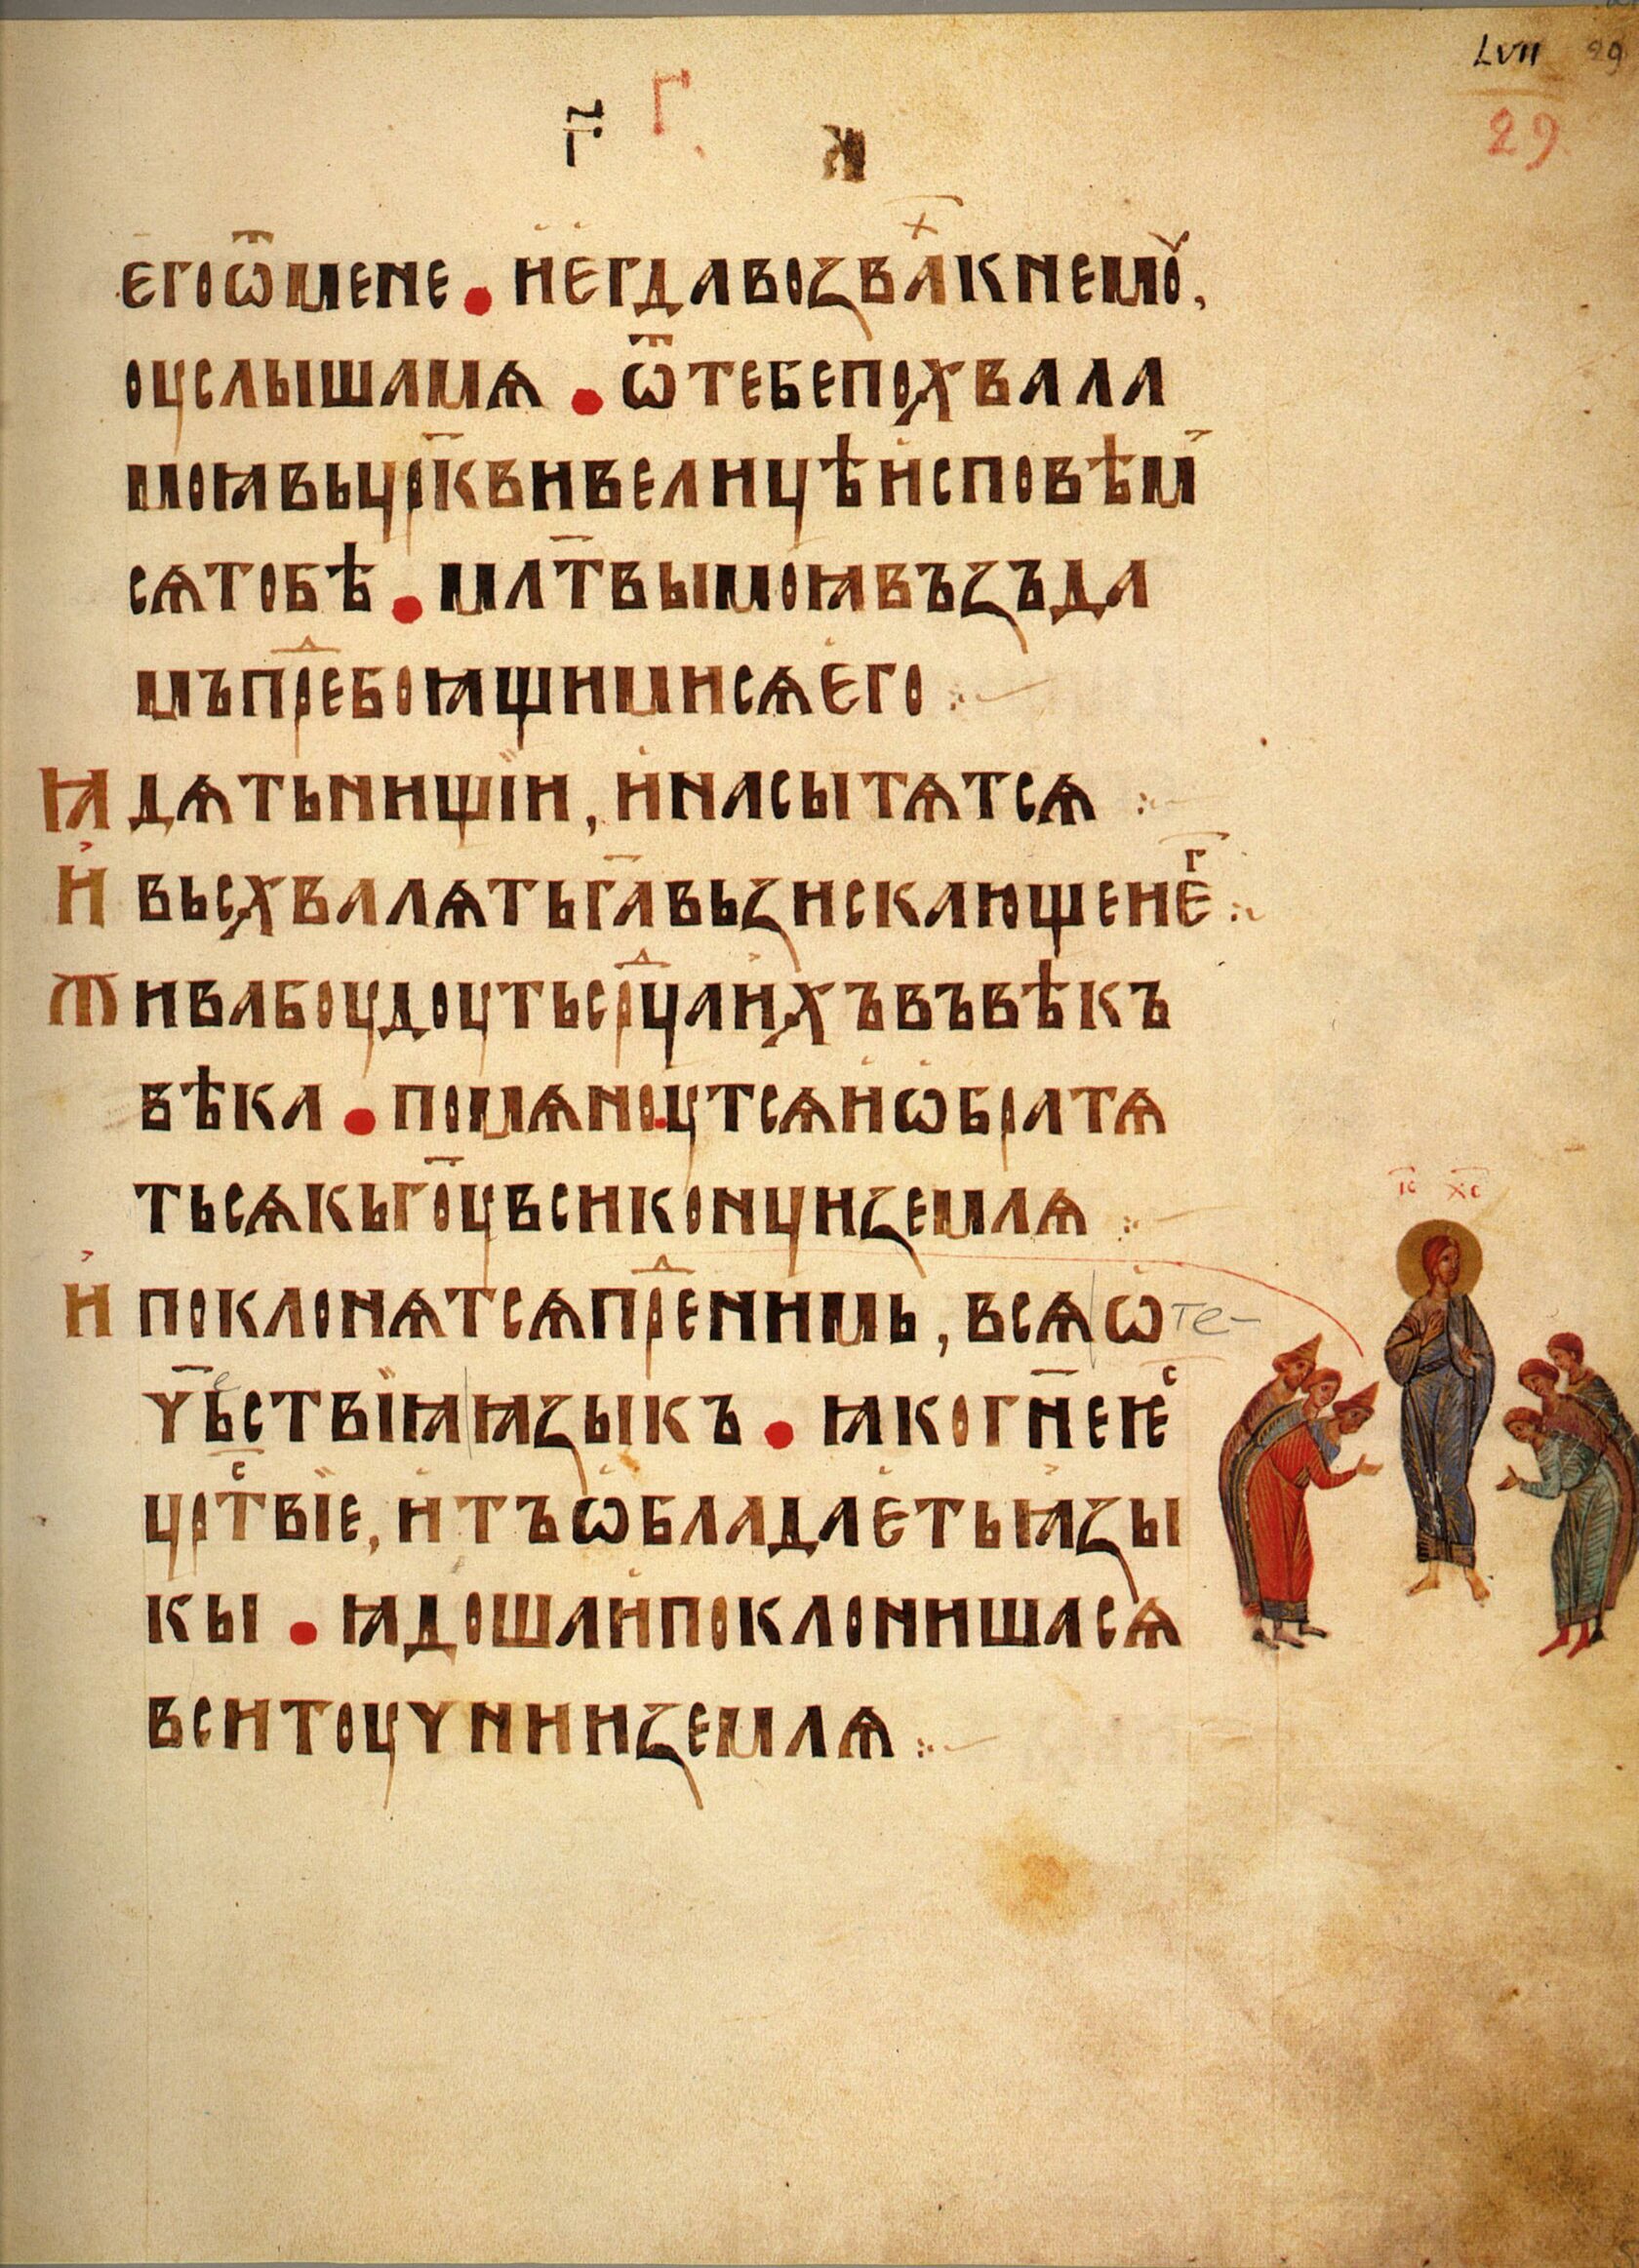 LVII 29
29
Г
К
его ѿ мене • и егда возвах к немоу,
оуслыша мя • ѿ тебе похвала
моꙗ вь црⷦ҇кви велицѣ исповѣмⸯ
сѧ тобѣ • млт҃вы моꙗ въꙁъда
мъ прⷣебоꙗщиими сѧ его
Ꙗдѧть нищїи, и насытѧтсѧ
И вьсхвалѧть га҃ вьꙁискающеи еⷢ
Жива боудоуть срⷣца ихъ въ вѣкъ
вѣка • помѧноутсѧ и ѡбратѧ
тьсѧ кь го҃у вси конци ꙁемлѧ
И поклонѧтсѧ прⷣе нимь, всѧ ѡте-
ч҃ьствїꙗ ꙗꙁыкъ • ꙗко гн҃е ѥⷭ
црⷭ҇твїе, и тъ ѡбладаеть ꙗꙁы
кы • ꙗдоша и поклонишасѧ
вси тоучнии ꙁемлѧ
ІС ХС